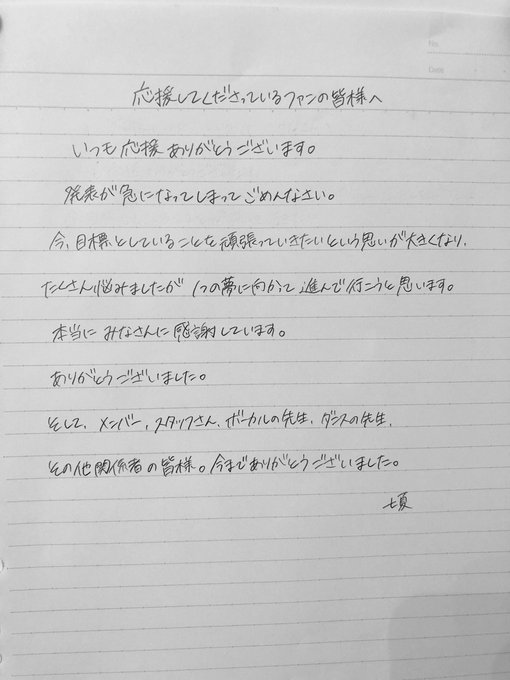 No.
Date
応援してくださっているファンの皆様へ
いつも応援ありがとうございます。
発表が急になってしまってごめんなさい。
今、目標としていることを頑張っていきたいという思いが大きくなり、
たくさん悩みましたが 1つの夢に向かって進んで行こうと思います。
本当にみなさんに感謝しています。
ありがとうございました。
そして、メンバー、スタッフさん、ボーカルの先生、ダンスの先生、
その他関係者の皆様。今までありがとうございました。
七夏